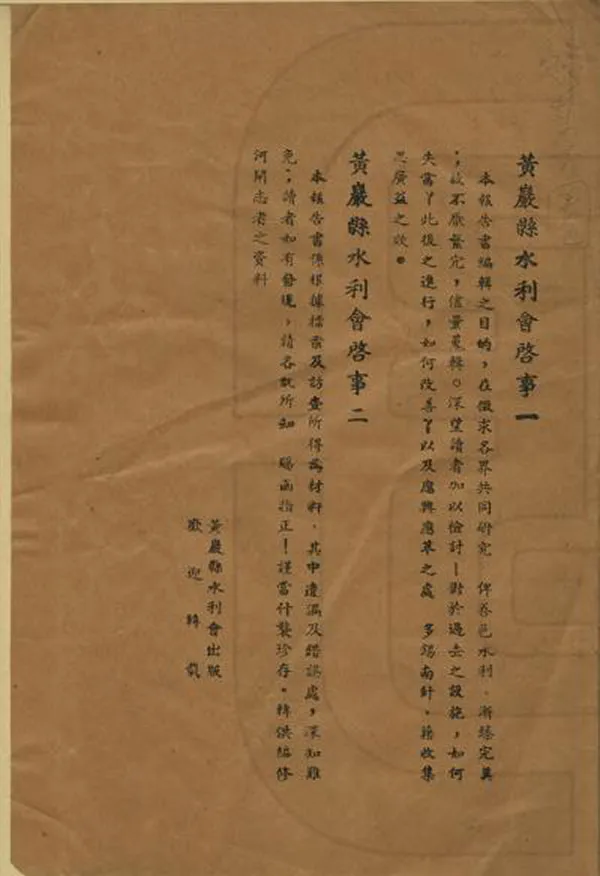 黃巖縣水利會啓事一
本報告書編輯之目的，在徵求各界共同研究 俾吾邑水利．漸臻完美
；故不厭繁冗，儘量蒐輯。深望讀者加以檢討－對於過去之設施，如何
失當丫此後之進行，如何改善丫以及應興應革之處 多錫南針．藉收集
思廣益之效。
黃巖縣水利會啓事二
本報告書係根據檔案及訪查所得為材料．其中遺漏及錯誤處，深知難
免；讀者如有發現，請各就所知 賜函指正！謹當什襲珍存。轉供編修
河閘志者之資料
黃巖縣水利會出版
歡迎轉載